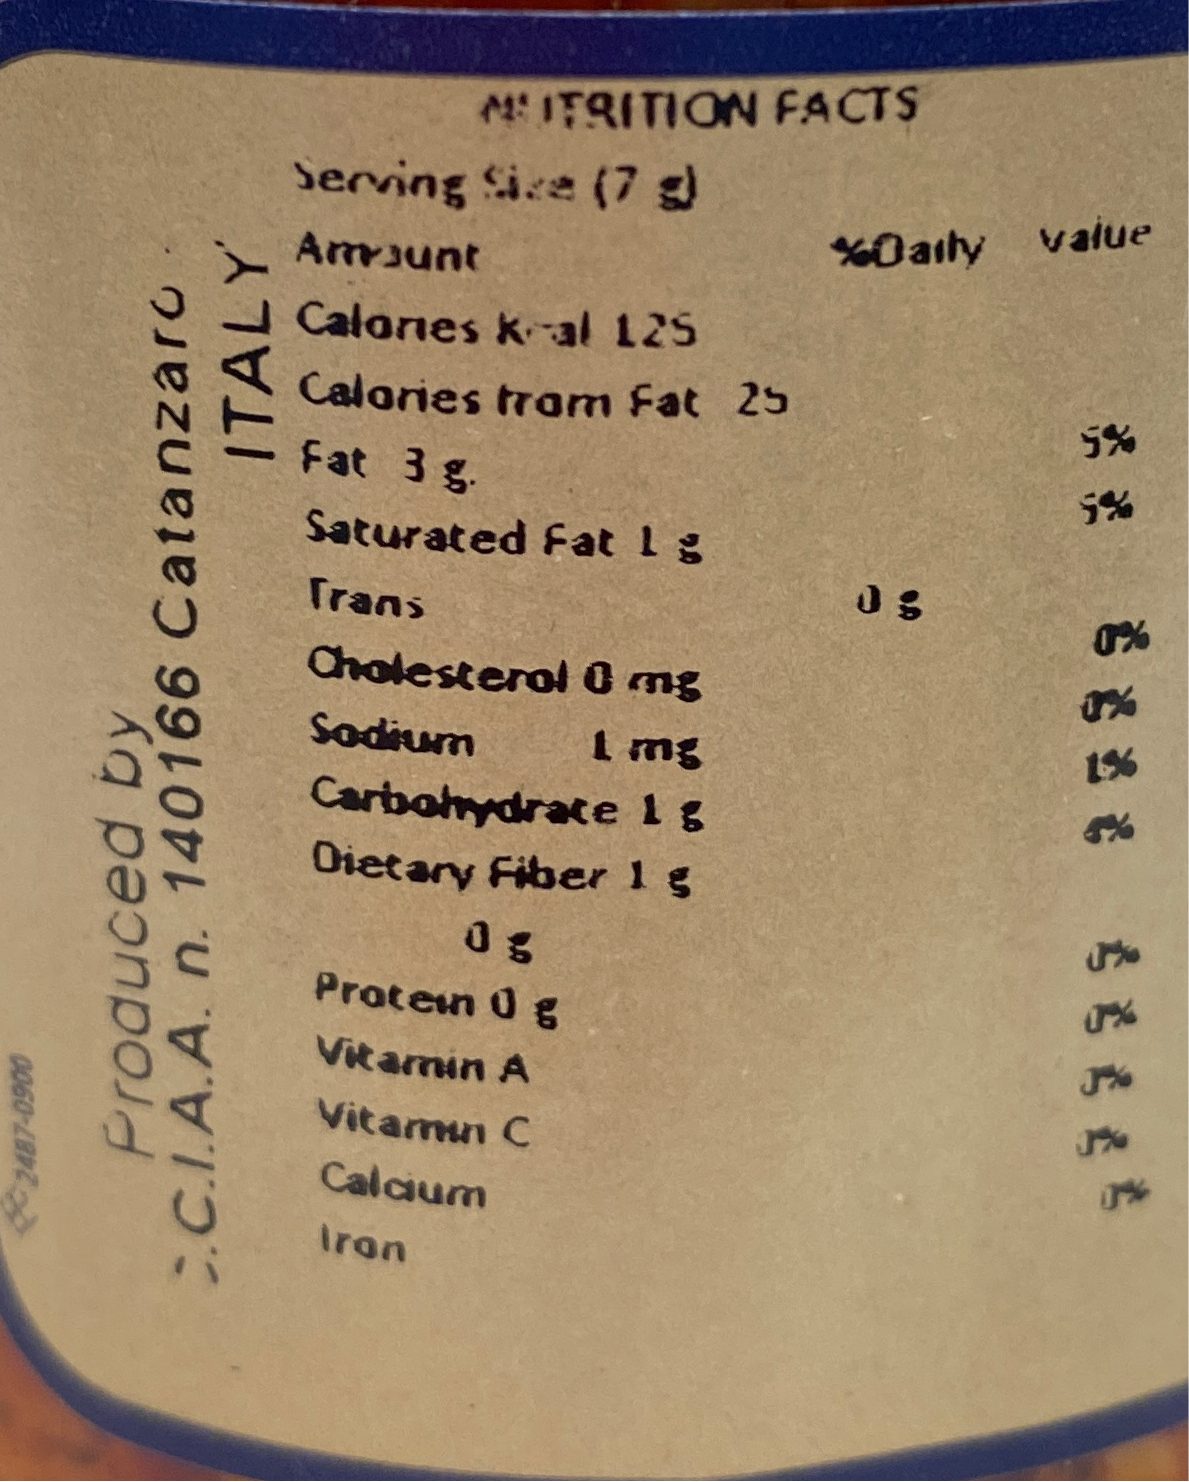 NUTRITION FACTS
Serving Size (7 g)
Amount %Daily value
Calories Kcal 125
Calories from Fat 25
Fat 3 g. 5%
Saturated Fat 1 g 5%
Trans 0 g
Cholesterol 0 mg 0%
Sodium 1 mg 0%
Carbohydrate 1 g 1%
Dietary Fiber 1 g
0 g
Protein 0 g 0%
Vitamin A 0%
Vitamin C 0%
Calcium 0%
Iron 0%
Produced by
C.I.A.A. n. 140166 Catanzaro
ITALY
2487-0900